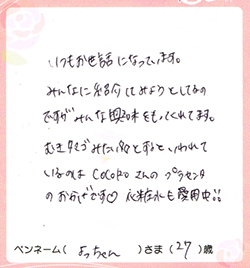 いつもお世話になっています。
みんなに紹介してみようとしてるの
ですがみんな興味をもってくれてます。
むきタマゴみたいな とすると いわれて
いるのは CoCoRo さんの プラセンタ
のおかげです♡ 化粧水も愛用中!!
ペンネーム( よっちゃん )さま(27)歳